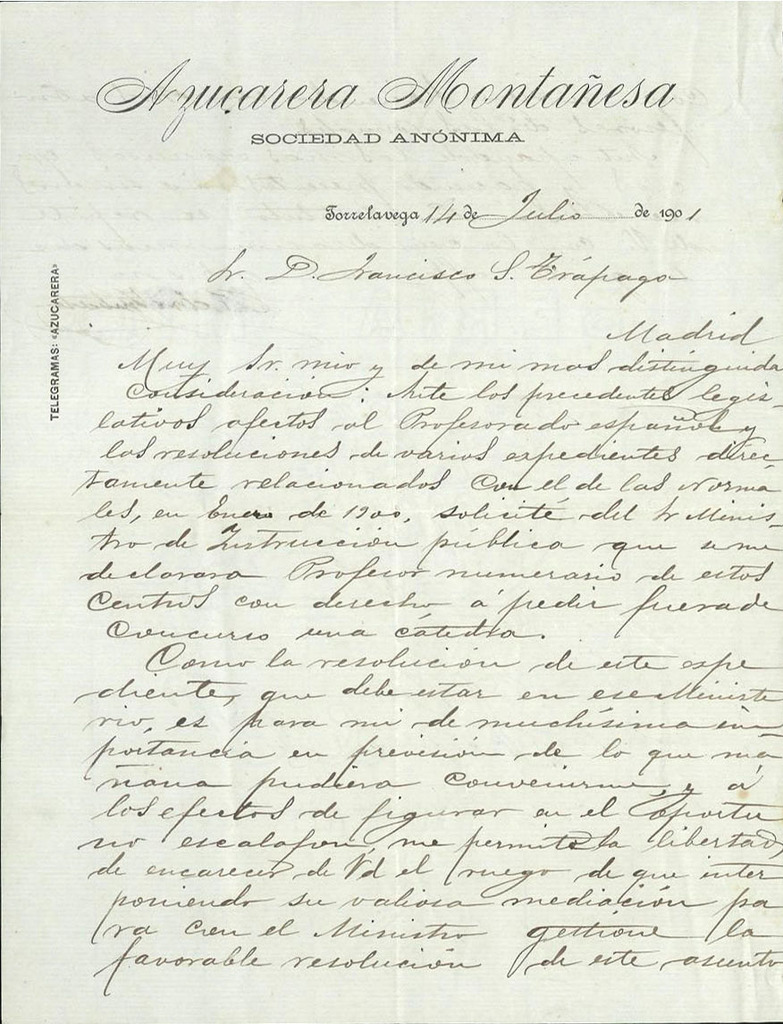 Azucarera Montañesa
SOCIEDAD ANÓNIMA
Torrelavega 14 de Julio de 1901
Sr. D. Francisco S. Trápago
Madrid
TELEGRAMAS: «AZUCARERA»
Muy Sr. mio y de mi mas distinguida
consideración: Ante los precedentes legis-
lativos afectos al Profesorado español y
las resoluciones de varios expedientes direc-
tamente relacionados con el de las Norma
les, en Enero de 1900, solicité del Sr Minis-
tro de Instrucción pública que se me
declarara Profesor numerario de estos
Centros con derecho á pedir fuera de
Concurso una cátedra.
Como la resolución de este expe
diente, que debe estar en ese Ministe
rio, es para mi de muchísima im-
portancia en previsión de lo que ma-
ñana pudiera convenirme, y á
los efectos de figurar en el oportu
no escalafon, me permito la libertad
de encarecer de Vd el ruego de que inter
poniendo su valiosa mediación pa
ra con el Ministro gestione la
favorable resolución de este asunto